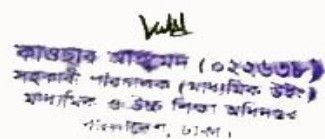 কাওছার আহমেদ (০২২৬৩৮)
সহকারী পরিচালক (মাধ্যমিক উইং)
মাধ্যমিক ও উচ্চ শিক্ষা অধিদপ্তর
বাংলাদেশ, ঢাকা।